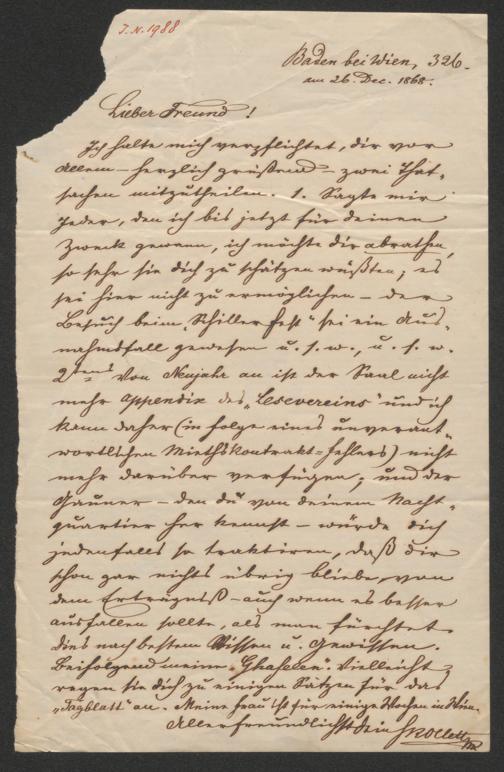 I.N. 1988
Baden bei Wien, 326.
am 26. Dec. 1868.
Lieber Freund!
Ich halte mich verpflichtet, dir vor
Allem – herzlich grüßend – zwei That-
sachen mitzutheilen. 1. Sagte mir
Jeder, den ich bis jetzt für deinen
Zweck gewann, ich möchte dir abrathen,
so sehr sie dich zu schätzen wüßten; es
sei hier nicht zu ermöglichen – der
Besuch beim „Schillerfest“ sei ein Aus-
nahmsfall gewesen u. s. w., u. s. w.
2tens Von Neujahr an ist der Saal nicht
mehr Appendix des „Lesevereins“ und ich
kann daher (in folge eines unverant-
wortlichen Miethskontrakt=fehlers) nicht
mehr darüber verfügen; und der
Gauner – den du von deinem Nacht-
quartier her kennst – würde dich
jedenfalls so traktiren, daß dir
schon gar nichts übrig bliebe, von
dem Erträgniß – auch wenn es besser
ausfallen sollte, als man fürchtet.
Dies nach bestem Wissen u. Gewissen.
Beifolgend meine „Ghaselen“. Vielleicht
regen sie dich zu einigen Sätzen für das
„Tagblatt“ an. Meine Frau ist für einige Wochen in Wien.
Allerfreundlichst dein HRollett